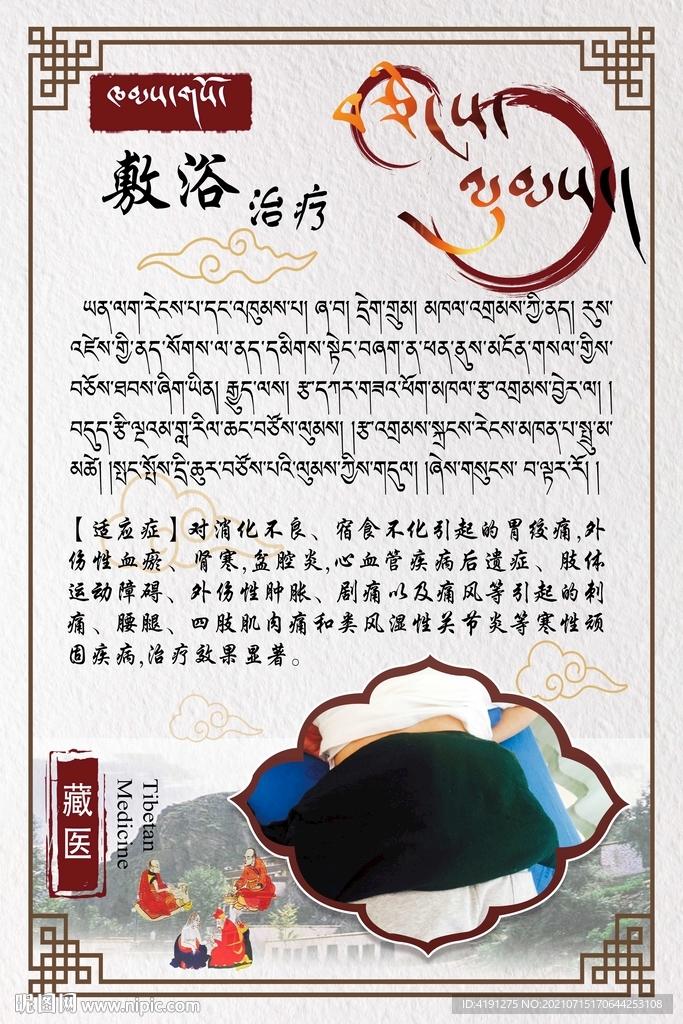 敷浴
治疗
ཡན་ལག་རེངས་པ་དང་འཁུམས་པ། ཞ་བ། དྲེག་གྲུམ། མཁལ་འགྲམས་ཀྱི་ནད། རུས་
འཛེས་གྱི་ནད་སོགས་ལ་ནད་དམིགས་སྟེང་བཞག་ན་ཕན་ནུས་མངོན་གསལ་གྱིས་
བཅོས་ཐབས་ཞིག་ཡིན། རྒྱུད་ལས། རྩ་དཀར་གཟའ་ཕོག་མཁལ་རྩ་འགྲམས་བྱེར་ལ། །
བདུད་རྩི་ལྔ་འམ་གླ་རིལ་ཆང་བཙོས་ལུམས། །རྩ་འགྲམས་སྐྲངས་རེངས་མཁན་པ་སྤྲུ་མ་
མཚེ། །སྤང་སྤོས་དྲི་ཆུར་བཙོས་པའི་ལུམས་ཀྱིས་གདུལ། །ཞེས་གསུངས་ བ་ལྟར་རོ། །
【适应症】对消化不良、宿食不化引起的胃绞痛,外
伤性血瘀、肾寒,盆腔炎,心血管疾病后遗症、肢体
运动障碍、外伤性肿胀、剧痛以及痛风等引起的刺
痛、腰腿、四肢肌肉痛和类风湿性关节炎等寒性顽
固疾病,治疗效果显著。
藏医
Tibetan
Medicine
昵图网 www.nipic.com
ID:4191275 NO:20210715170644253108